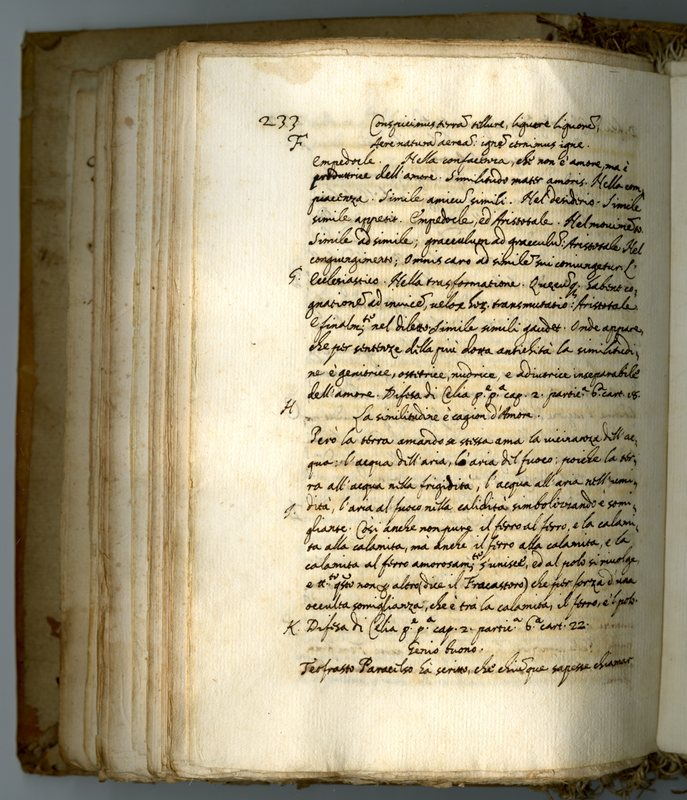 233 Conspicimus terrā tellure, liquore liquorē,
F Aere naturā aereā: ignē cernimus igne.
Empedocle. Nella confacenza, che non è amore, ma è
produttrice dell'amore. Similitudo mater amoris. Nella com,
piacenza. Simile amicū simili. Nel desiderio. Simile
simile appetit. Empedocle, ed Aristotale. Nel movimēto.
Simile ad simile; graeculum ad graeculū. Aristotale. Nel
congiungimento; omnis caro ad similē sui coniungetur. L'
G. Ecclesiastico. Nella trasformatione. Quaecūq. habent co,
gnationē ad invicē, velox hoz. transmutatio: Aristotale.
E finalm.te nel diletto. Simile simili gaudet. Onde appare,
che per sentenze della più dotta antichità la similitudi,
ne è genitrice, ostitrice, nudrice, e adiutrice inseparabile
dell'amore. Difesa di Celia p.e p.a cap. 2. partic.a 6.a cart. 18.
H La similitudine è cagion d'Amore.
Però la terra amando se stessa ama la vicinanza dell'ac,
qua: l'acqua dell'aria, l'aria del fuoco: poiche la ter,
ra all'acqua nella frigidità, l'acqua all'aria nell'umi,
J. dità, l'aria al fuoco nella calidità simbolizzando è somi,
gliante. Così anche non pure il ferro al ferro, e la calami,
ta alla calamita, mà anche il ferro alla calamita, e la
calamita al ferro amorosam.te s'unisce, ed al polo si rivolge,
e q.to non p altro (dice il Fracastoro) che per forza d'una
occulta somiglianza, che è tra la calamita, il ferro, e'l polo.
K Difesa di Celia p.e p.a cap. 2. partic.a 6.a cart. 22.
Genio buono.
Teofrasto Paracelso hà scritto, che chiūque sapesse chiamar